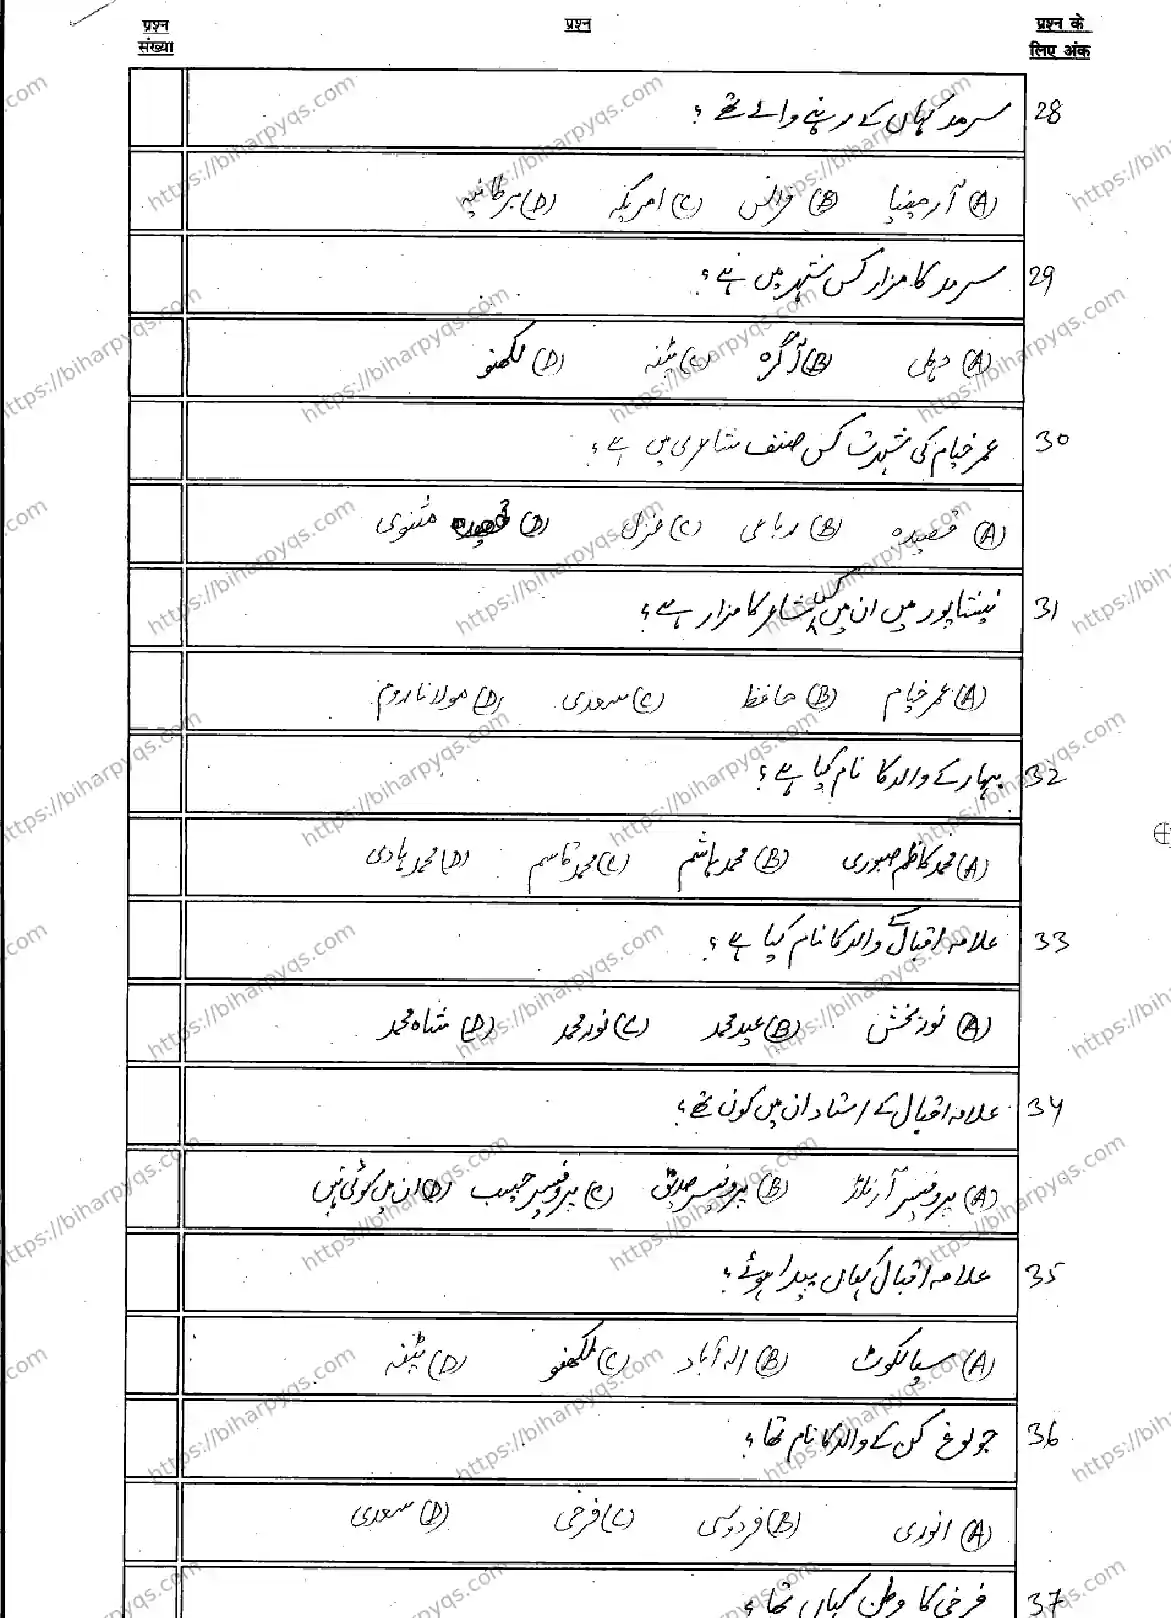 प्रश्न संख्या
प्रश्न
प्रश्न के लिए अंक
28 سرمد کہاں کے رہنے والے تھے ؟
(A) آرمینیا (B) فرانس (C) امریکہ (D) برطانیہ
29 سرمد کا مزار کس شہر میں ہے ؟
(A) دہلی (B) آگرہ (C) پٹنہ (D) لکھنو
30 عمر خیام کی شہرت کس صنف شاعری میں ہے ؟
(A) قصیدہ (B) رباعی (C) غزل (D) مثنوی
31 نیشاپور میں ان میں کس شاعر کا مزار ہے ؟
(A) عمر خیام (B) حافظ (C) سعدی (D) مولانا روم
32 بہار کے والد کا نام کیا ہے ؟
(A) محمد کاظم صبوری (B) محمد ہاشم (C) محمد قاسم (D) محمد ہادی
33 علامہ اقبال کے والد کا نام کیا ہے ؟
(A) نور بخش (B) عید محمد (C) نور محمد (D) شاہ محمد
34 علامہ اقبال کے استاد ان میں کون تھے ؟
(A) پروفیسر آرنلڈ (B) پروفیسر صدیق (C) پروفیسر حبیب (D) ان میں کوئی نہیں
35 علامہ اقبال کہاں پیدا ہوئے ؟
(A) سیالکوٹ (B) الہ آباد (C) لکھنو (D) پٹنہ
36 جولوغ کس کے والد کا نام تھا ؟
(A) انوری (B) فردوسی (C) فرخی (D) سعدی
37 فرخی کا وطن کہاں تھا ؟
https://biharpyqs.com